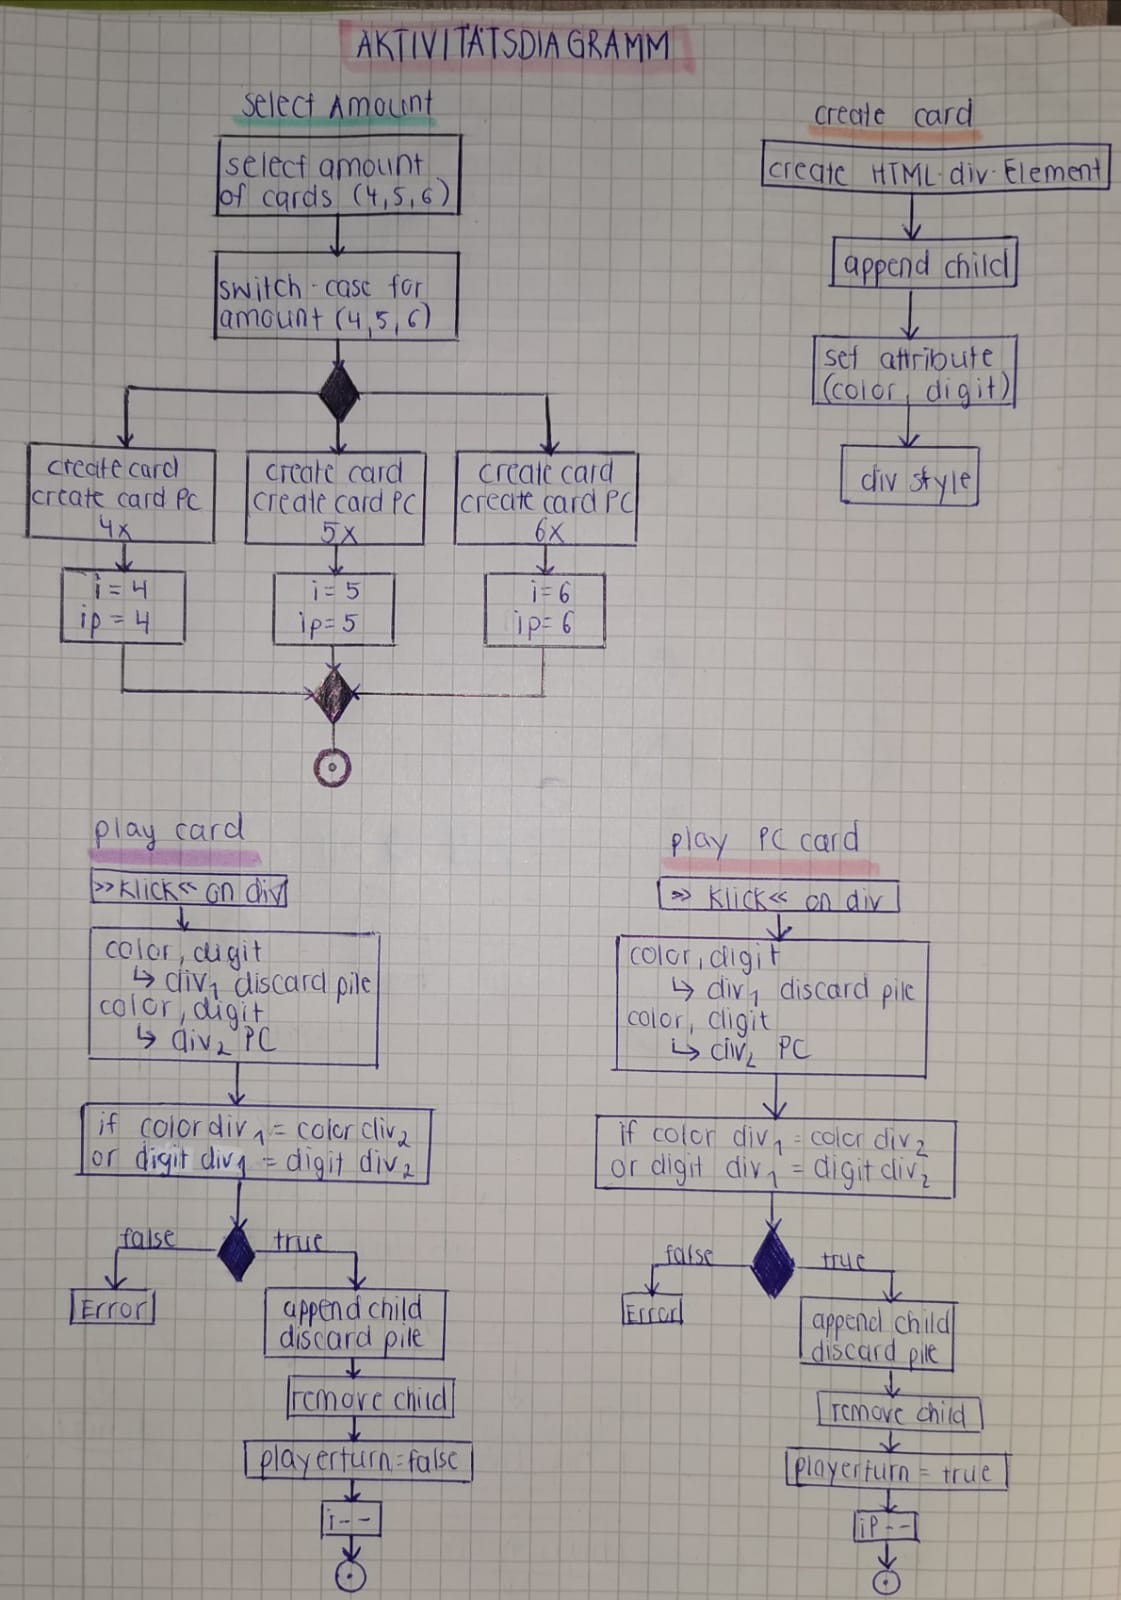 AKTIVITÄTSDIAGRAMM
select Amount
select amount
of cards (4,5,6)
switch-case for
amount (4,5,6)
create card
create card PC
4x
i = 4
ip = 4
create card
create card PC
5x
i = 5
ip = 5
create card
create card PC
6x
i = 6
ip = 6
create card
create HTML-div-Element
append child
set attribute
(color, digit)
div style
play card
>>Klick<< on div
color, digit
↳ div₁ discard pile
color, digit
↳ div₂ PC
if color div₁ = color div₂
or digit div₁ = digit div₂
false
true
Error
append child
discard pile
remove child
playerturn=false
i--
play PC card
>> Klick<< on div
color, digit
↳ div₁ discard pile
color, digit
↳ div₂ PC
if color div₁ = color div₂
or digit div₁ = digit div₂
false
true
Error
append child
discard pile
remove child
playerturn = true
iP--